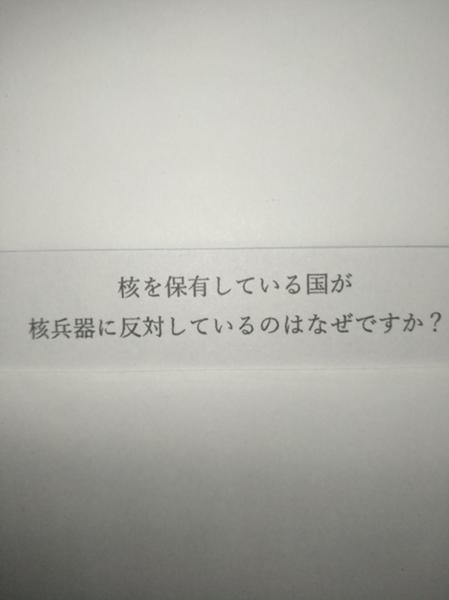 核を保有している国が
核兵器に反対しているのはなぜですか？